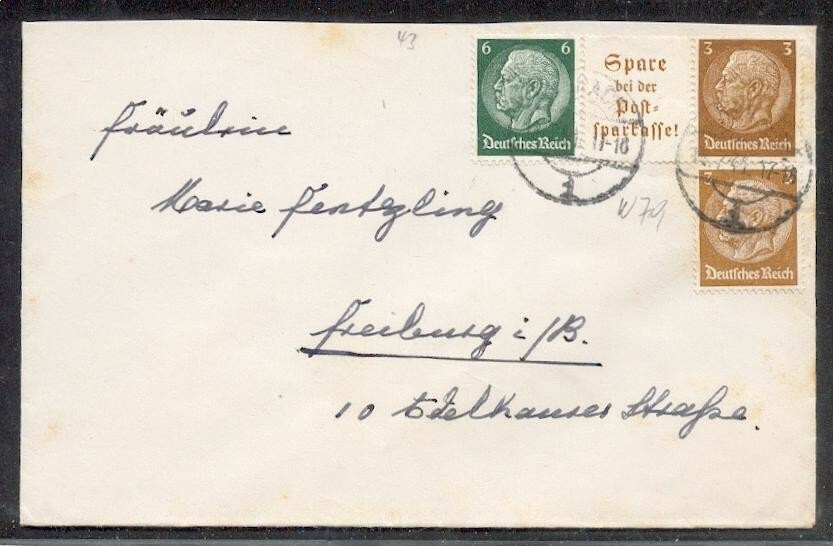 43
6 6
Deutsches Reich
Spare
bei der
Post-
sparkasse!
3 3
Deutsches Reich
17-18
17-18
3
Deutsches Reich
W 79
Fräulein
Marie
Freiburg i/B.
10 Edelhauser Straße.